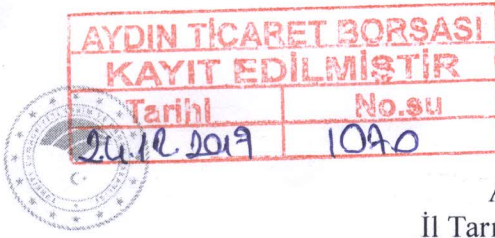 AYDIN TİCARET BORSASI
KAYIT EDİLMİŞTİR
Tarihi No.su
24.12.2019 1070
A
İl Tarı